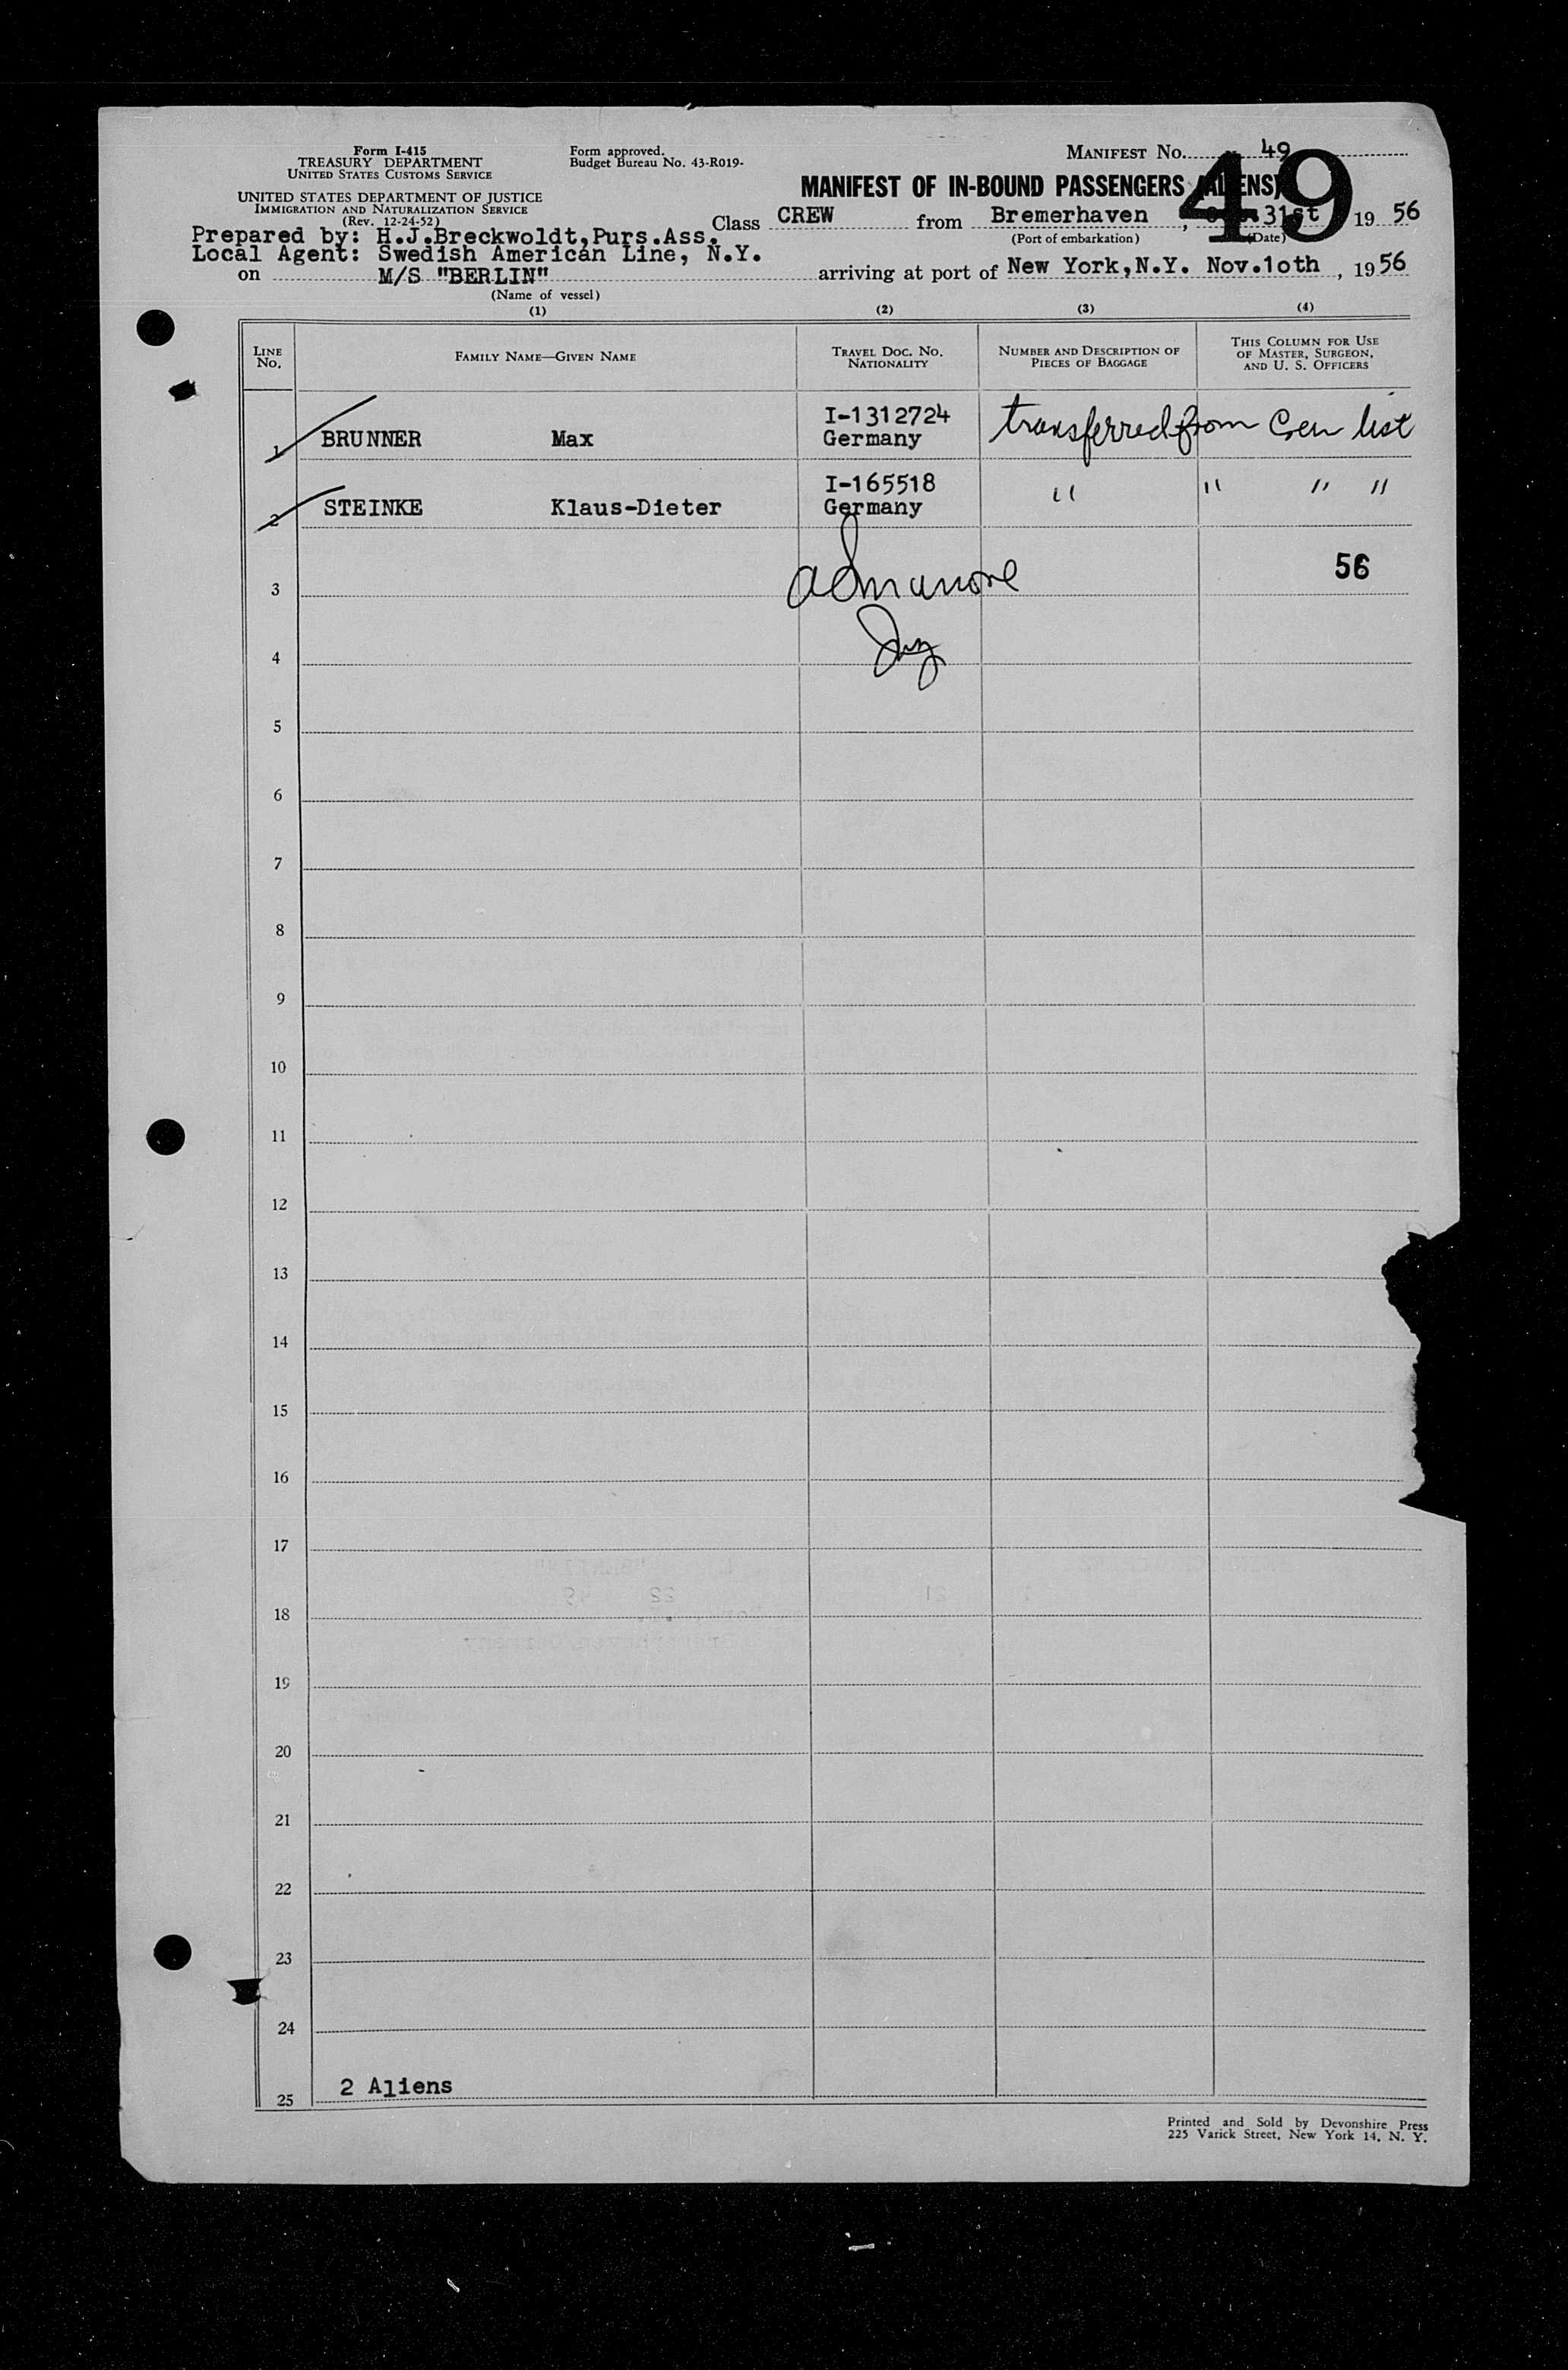 Form I-415
TREASURY DEPARTMENT
UNITED STATES CUSTOMS SERVICE
UNITED STATES DEPARTMENT OF JUSTICE
IMMIGRATION AND NATURALIZATION SERVICE
(Rev. 12-24-52)
Form approved.
Budget Bureau No. 43-R019-
MANIFEST No. 49
49
MANIFEST OF IN-BOUND PASSENGERS (ALIENS)
Class CREW from Bremerhaven , 31st 19 56
(Port of embarkation) (Date)
Prepared by: H.J.Breckwoldt,Purs.Ass.
Local Agent: Swedish American Line, N.Y.
on M/S "BERLIN" arriving at port of New York,N.Y. Nov.1oth , 19 56
(Name of vessel)
(1) (2) (3) (4)
LINE No. FAMILY NAME—GIVEN NAME TRAVEL DOC. NO. NATIONALITY NUMBER AND DESCRIPTION OF PIECES OF BAGGAGE THIS COLUMN FOR USE OF MASTER, SURGEON, AND U. S. OFFICERS
I-1312724
1 BRUNNER Max Germany transferred from Crew list
I-165518
2 STEINKE Klaus-Dieter Germany " " " "
3 56
4
5
6
7
8
9
10
11
12
13
14
15
16
17
18
19
20
21
22
23
24
25 2 Aliens
Printed and Sold by Devonshire Press
225 Varick Street, New York 14, N. Y.